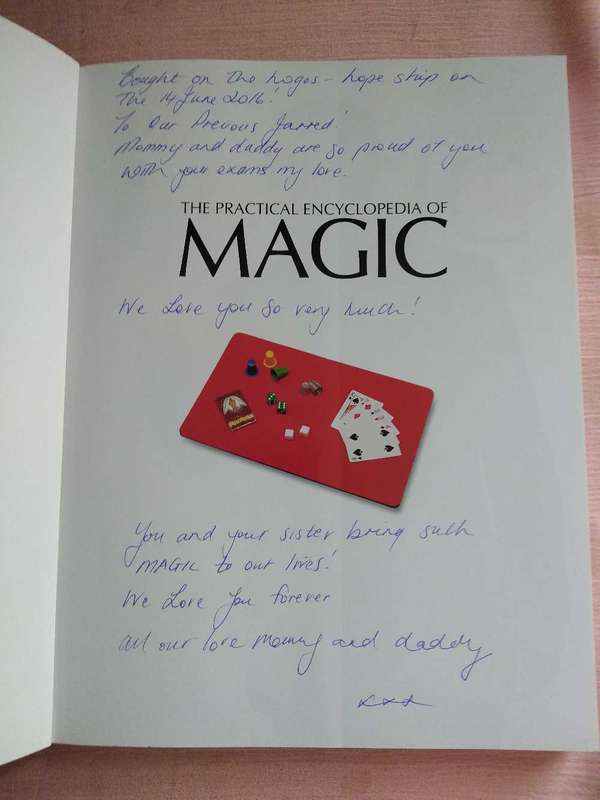 Bought on the Logos - hope ship on
the 14 June 2016!
To Our Precious Jarred!
Mommy and daddy are so proud of you
with your exams my love.
THE PRACTICAL ENCYCLOPEDIA OF
MAGIC
We Love you so very much!
You and your sister bring such
MAGIC to our lives!
We Love You forever
All our love Mommy and daddy
xxx